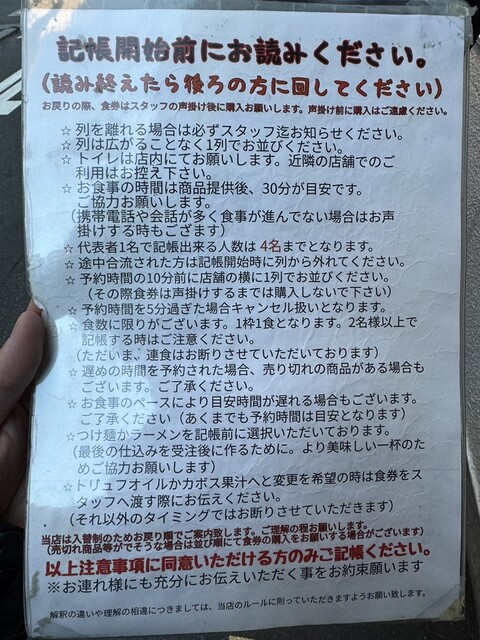 記帳開始前にお読みください。
(読み終えたら後ろの方に回してください)
お戻りの際、食券はスタッフの声掛け後に購入お願いします。声掛け前に購入はご遠慮ください。
☆列を離れる場合は必ずスタッフ迄お知らせください。
☆列は広がることなく1列でお並びください。
☆トイレは店内にてお願いします。近隣の店舗でのご
利用はお控え下さい。
☆お食事の時間は商品提供後、30分が目安です。
ご協力お願いします。
(携帯電話や会話が多く食事が進んでない場合はお声
掛けする時もござます)
☆代表者1名で記帳出来る人数は 4名までとなります。
☆途中合流された方は記帳開始時に列から外れてください。
☆予約時間の10分前に店舗の横に1列でお並びください。
(その際食券は声掛けするまでは購入しないで下さい)
☆予約時間を5分過ぎた場合キャンセル扱いとなります。
☆食数に限りがございます。1枠1食となります。2名様以上で
記帳する時はご注意ください。
(ただいま、連食はお断りさせていただいております)
☆遅めの時間を予約された場合、売り切れの商品がある場合も
ございます。ご了承ください。
☆お食事のペースにより目安時間が遅れる場合もございます。
ご了承ください(あくまでも予約時間は目安となります)
☆つけ麺かラーメンを記帳前に選択いただいております。
(最後の仕込みを受注後に作るために。より美味しい一杯のた
めご協力お願いします)
☆トリュフオイルかカボス果汁へと変更を希望の時は食券をス
タッフへ渡す際にお伝えください。
(それ以外のタイミングではお断りさせていただきます)
当店は入替制のためお戻り順でご案内致します。ご理解の程お願いします。
(売切れ商品等がでそうな場合は並び順にて食券の購入をお願いする場合がございます)
以上注意事項に同意いただける方のみご記帳ください。
※お連れ様にも充分にお伝えいただく事をお約束願います
解釈の違いや理解の相違につきましては、当店のルールに則っていただきますようお願い致します。